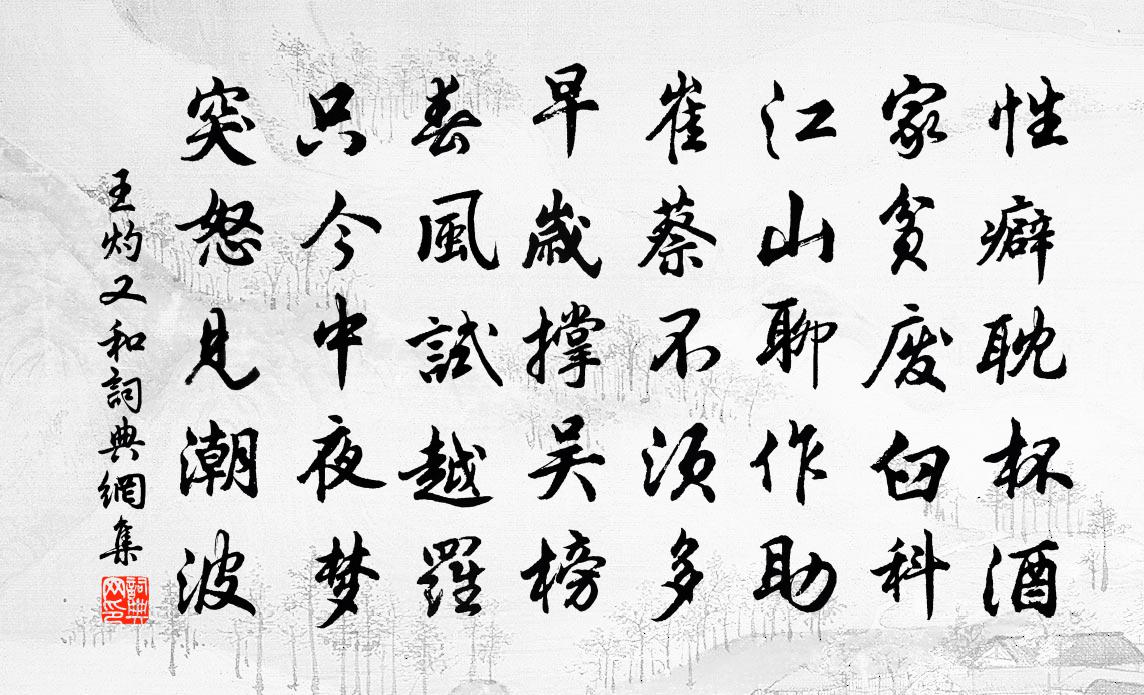 性癖耽杯酒
家贫废臼科
江山聊作助
崔蔡不须多
早歲撑吴榜
春風試越羅
只今中夜梦
突怒見潮波
王灼又和詞典網集
詞典